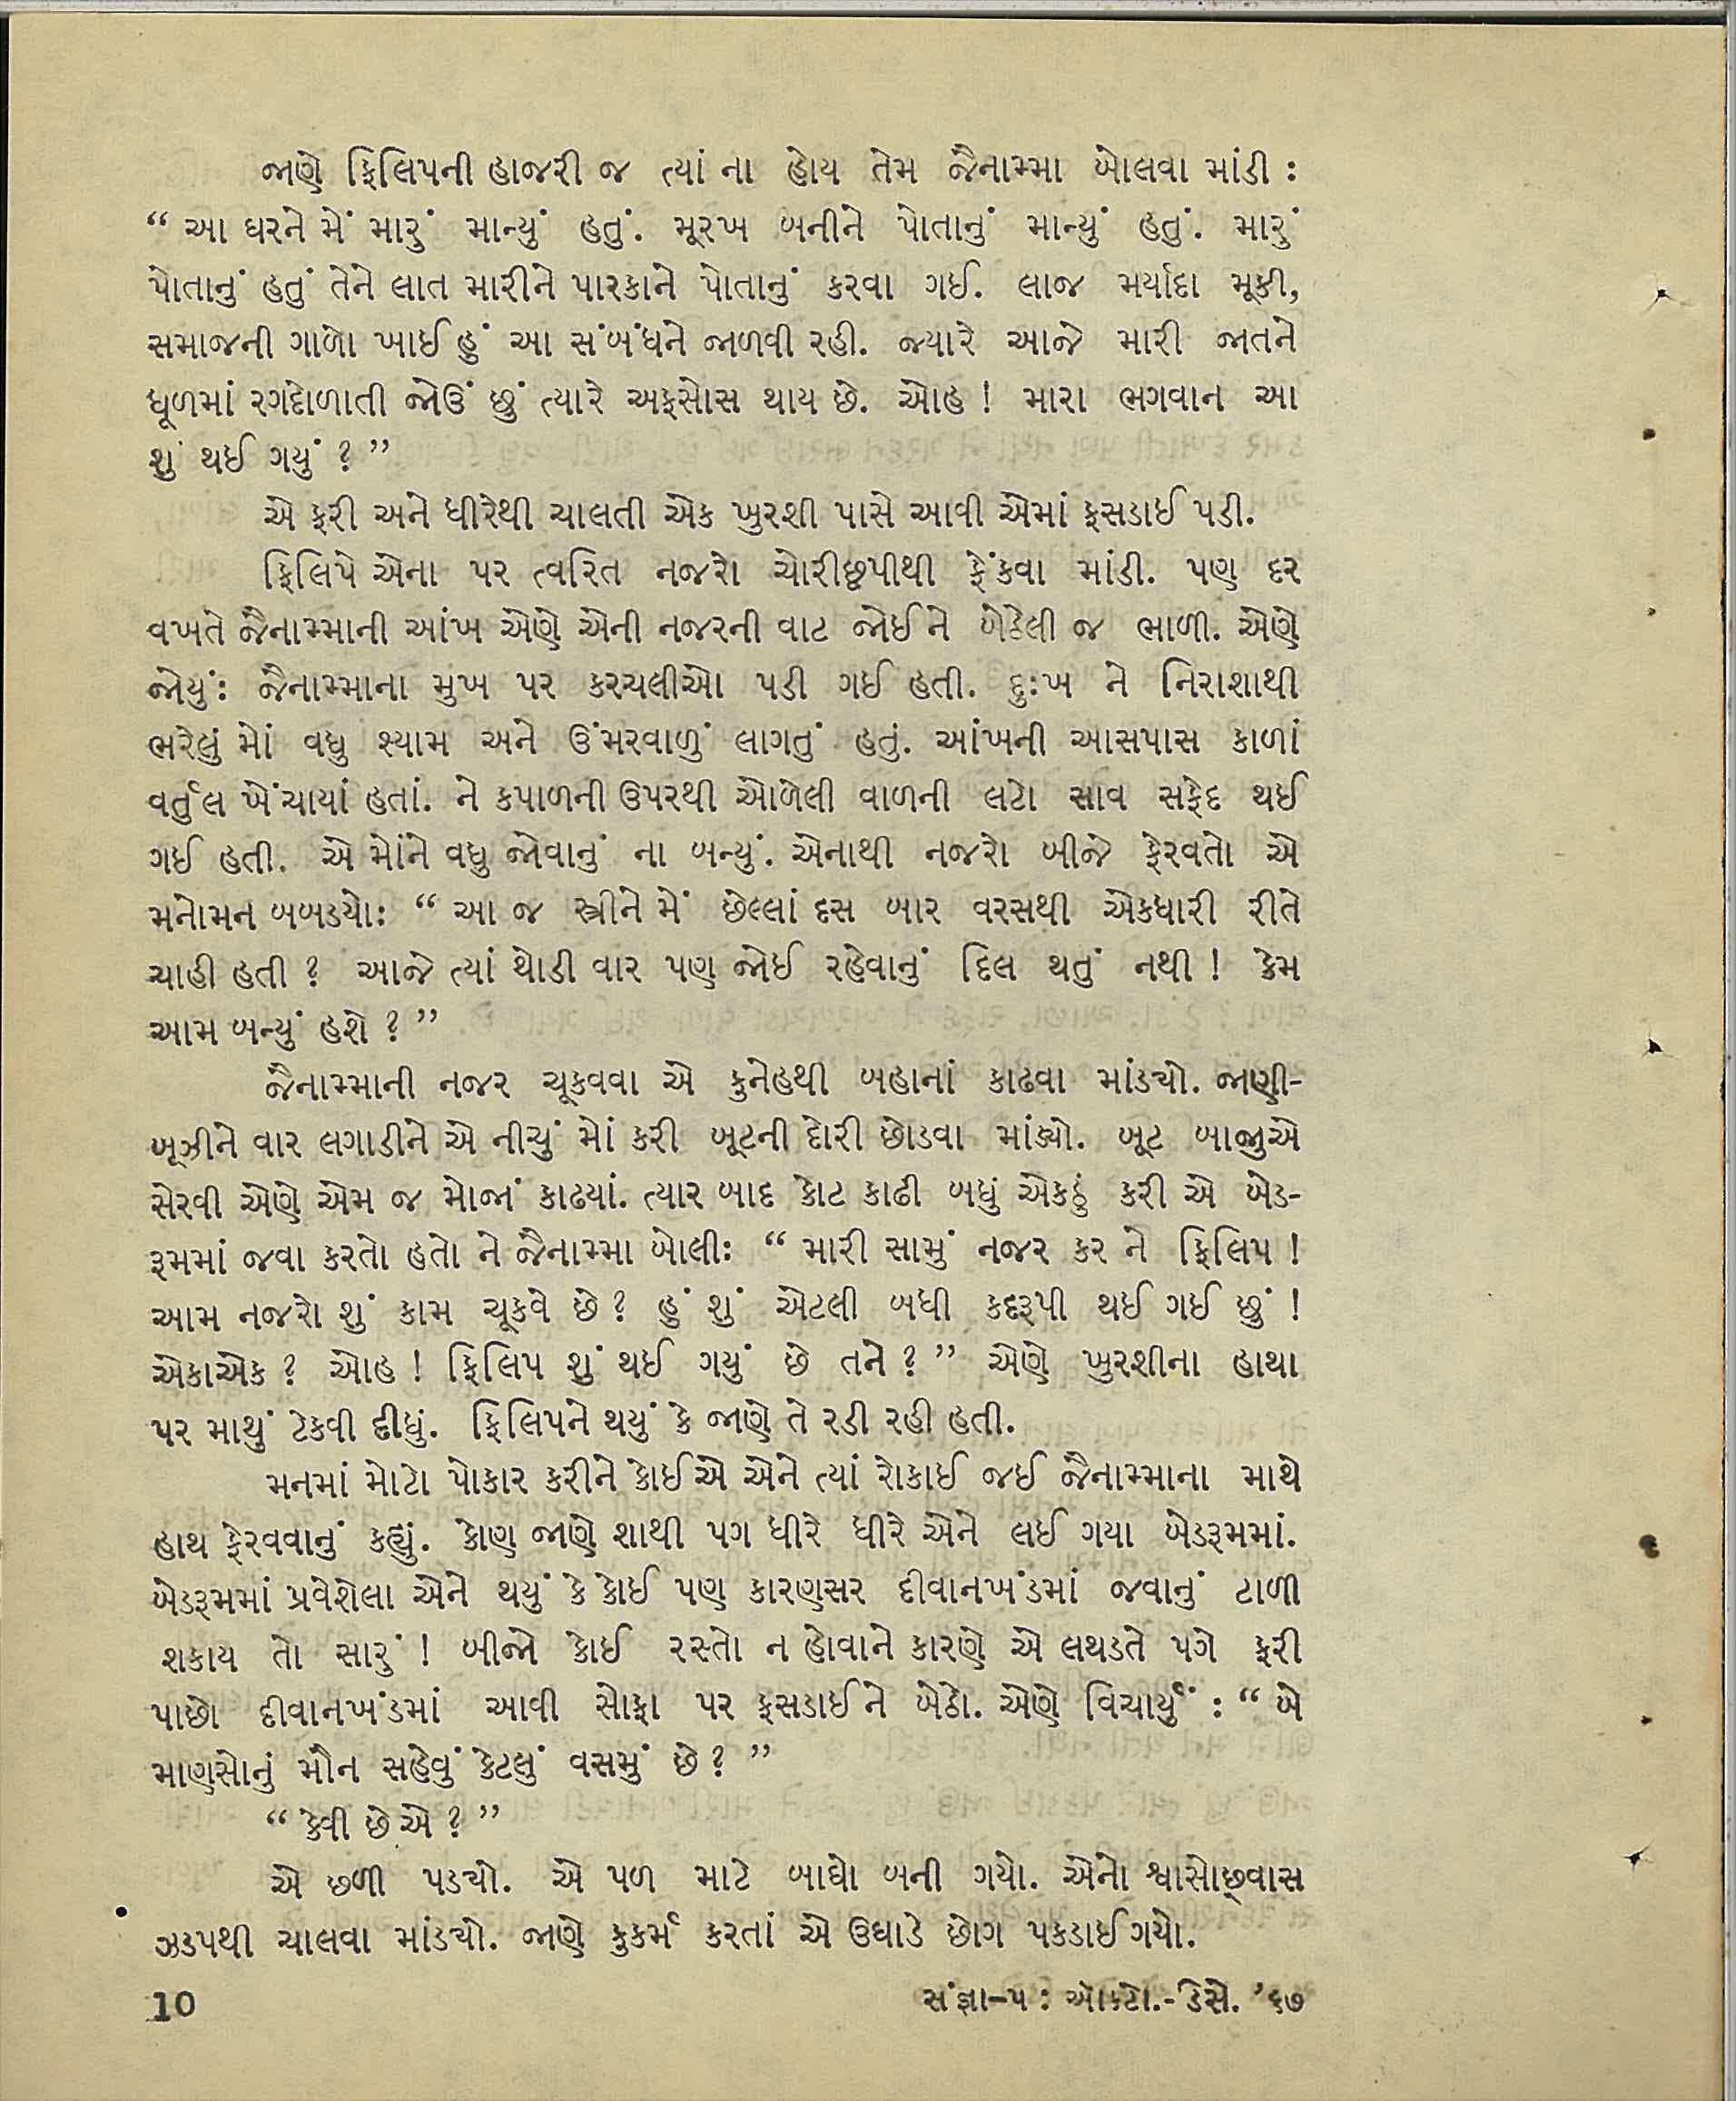 જાણે ફિલિપની હાજરી જ ત્યાં ના હોય તેમ જૈનામ્મા બોલવા માંડી :
“ આ ઘરને મેં મારું માન્યું હતું. મૂરખ બનીને પોતાનું માન્યું હતું. મારું
પોતાનું હતું તેને લાત મારીને પારકાને પોતાનું કરવા ગઈ. લાજ મર્યાદા મૂકી,
સમાજની ગાળો ખાઈ હું આ સંબંધને જાળવી રહી. જ્યારે આજે મારી જાતને
ધૂળમાં રગદોળાતી જોઉં છું ત્યારે અફસોસ થાય છે. ઓહ ! મારા ભગવાન આ
શું થઈ ગયું ? ”
એ ફરી અને ધીરેથી ચાલતી એક ખુરશી પાસે આવી એમાં ફસડાઈ પડી.
ફિલિપે એના પર ત્વરિત નજરો ચોરીછૂપીથી ફેંકવા માંડી. પણ દર
વખતે જૈનામ્માની આંખ એણે એની નજરની વાટ જોઈને બેઠેલી જ ભાળી. એણે
જોયું: જૈનામ્માના મુખ પર કરચલીઓ પડી ગઈ હતી. દુઃખ ને નિરાશાથી
ભરેલું મોં વધુ શ્યામ અને ઉંમરવાળું લાગતું હતું. આંખની આસપાસ કાળાં
વર્તુલ ખેંચાયાં હતાં. ને કપાળની ઉપરથી ઓળેલી વાળની લટો સાવ સફેદ થઈ
ગઈ હતી. એ મોંને વધુ જોવાનું ના બન્યું. એનાથી નજરો બીજે ફેરવતો એ
મનોમન બબડયો: “ આ જ સ્ત્રીને મેં છેલ્લાં દસ બાર વરસથી એકધારી રીતે
ચાહી હતી ? આજે ત્યાં થોડી વાર પણ જોઈ રહેવાનું દિલ થતું નથી ! કેમ
આમ બન્યું હશે ? ”
જૈનામ્માની નજર ચૂકવવા એ કુનેહથી બહાનાં કાઢવા માંડ્યો. જાણી-
બૂઝીને વાર લગાડીને એ નીચું મોં કરી બૂટની દોરી છોડવા માંડ્યો. બૂટ બાજુએ
સેરવી એણે એમ જ મોજાં કાઢયાં. ત્યાર બાદ કોટ કાઢી બધું એકઠું કરી એ બેડ-
રૂમમાં જવા કરતો હતો ને જૈનામ્મા બોલી: “ મારી સામું નજર કર ને ફિલિપ !
આમ નજરો શું કામ ચૂકવે છે ? હું શું એટલી બધી કદરૂપી થઈ ગઈ છું !
એકાએક ? ઓહ ! ફિલિપ શું થઈ ગયું છે તને ? ” એણે ખુરશીના હાથા
પર માથું ટેકવી દીધું. ફિલિપને થયું કે જાણે તે રડી રહી હતી.
મનમાં મોટો પોકાર કરીને કોઈએ એને ત્યાં રોકાઈ જઈ જૈનામ્માના માથે
હાથ ફેરવવાનું કહ્યું. કોણ જાણે શાથી પગ ધીરે ધીરે એને લઈ ગયા બેડરૂમમાં.
બેડરૂમમાં પ્રવેશેલા એને થયું કે કોઈ પણ કારણસર દીવાનખંડમાં જવાનું ટાળી
શકાય તો સારું ! બીજો કોઈ રસ્તો ન હોવાને કારણે એ લથડતે પગે ફરી
પાછો દીવાનખંડમાં આવી સોફા પર ફસડાઈને બેઠો. એણે વિચાર્યું : “ બે
માણસોનું મૌન સહેવું કેટલું વસમું છે ? ”
“ કેવી છે એ ? ”
એ છળી પડ્યો. એ પળ માટે બાઘો બની ગયો. એનો શ્વાસોછ્વાસ
ઝડપથી ચાલવા માંડ્યો. જાણે કુકર્મ કરતાં એ ઉઘાડે છોગ પકડાઈ ગયો.
10
સંજ્ઞા–૫ : ઓક્ટો.-ડિસે. ’૬૭